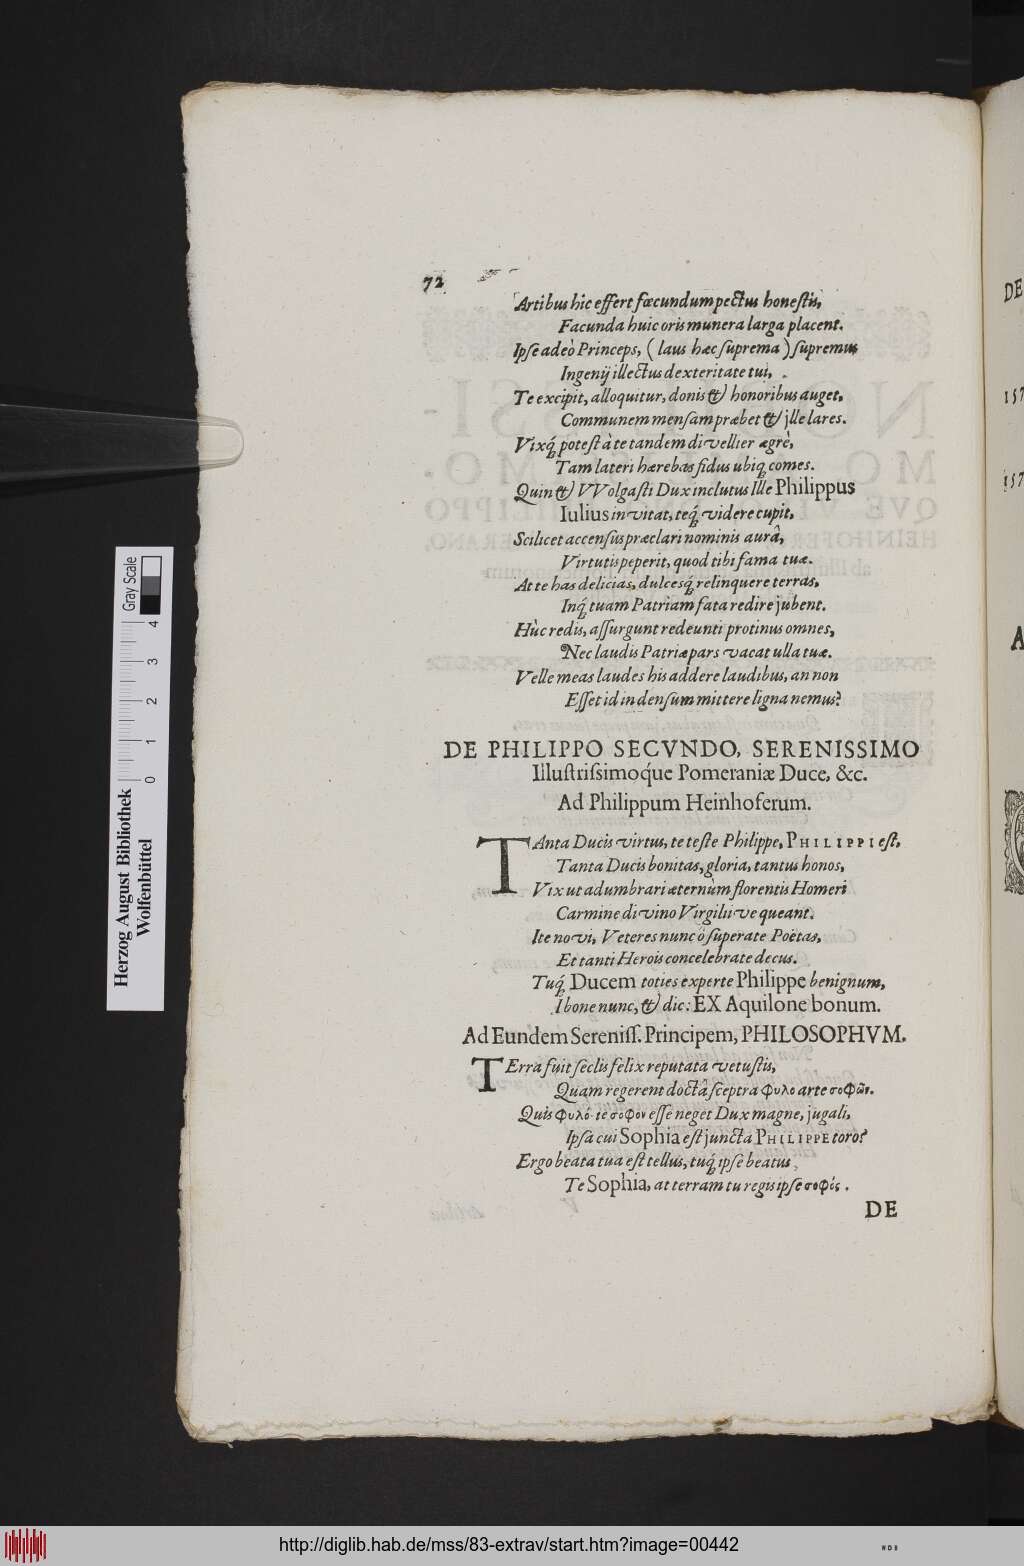 72
Artibus hic effert fœcundum pectus honestis,
Facunda huic oris munera larga placent.
Ipse adeò Princeps, (laus hæc suprema) supremus
Ingenij illectus dexteritate tui,
Te excipit, alloquitur, donis & honoribus auget,
Communem mensam præbet & jlle lares.
Vixq́; potest à te tandem divellier ægrè,
Tam lateri hærebas fidus ubiq; comes.
Quin & VVolgasti Dux inclutus Ille Philippus
Iulius invitat, teq́; videre cupit,
Scilicet accensus præclari nominis aurâ,
Virtutis peperit, quod tibi fama tuæ.
At te has delicias, dulcesq́; relinquere terras,
Inq́; tuam Patriam fata redire jubent.
Hùc redis, assurgunt redeunti protinus omnes,
Nec laudis Patriæ pars vacat ulla tuæ.
Velle meas laudes his addere laudibus, an non
Esset id in densum mittere ligna nemus?
DE PHILIPPO SECVNDO, SERENISSIMO
Illustrissimoq́ue Pomeraniæ Duce, &c.
Ad Philippum Heinhoferum.
TAnta Ducis virtus, te teste Philippe, PHILIPPI est,
Tanta Ducis bonitas, gloria, tantus honos,
Vix ut adumbrari æternùm florentis Homeri
Carmine divino Virgilii ve queant.
Ite novi, Veteres nunc ô superate Poëtas,
Et tanti Herois concelebrate decus.
Tuq́; Ducem toties experte Philippe benignum,
I bone nunc, & dic: EX Aquilone bonum.
Ad Eundem Sereniss. Principem, PHILOSOPHVM.
TErra fuit seclis felix reputata vetustis,
Quam regerent doctâ sceptra φυλο arte σοφῶν.
Quis φυλό te σοφον esse neget Dux magne, jugali,
Ipsa cui Sophia est juncta PHILIPPE toro?
Ergo beata tua est tellus, tuq́; ipse beatus,
Te Sophia, at terram tu regis ipse σοφός.
DE
Herzog August Bibliothek
Wolfenbüttel
Gray Scale
0 1 2 3 4
DE
157
157
A
http://diglib.hab.de/mss/83-extrav/start.htm?image=00442